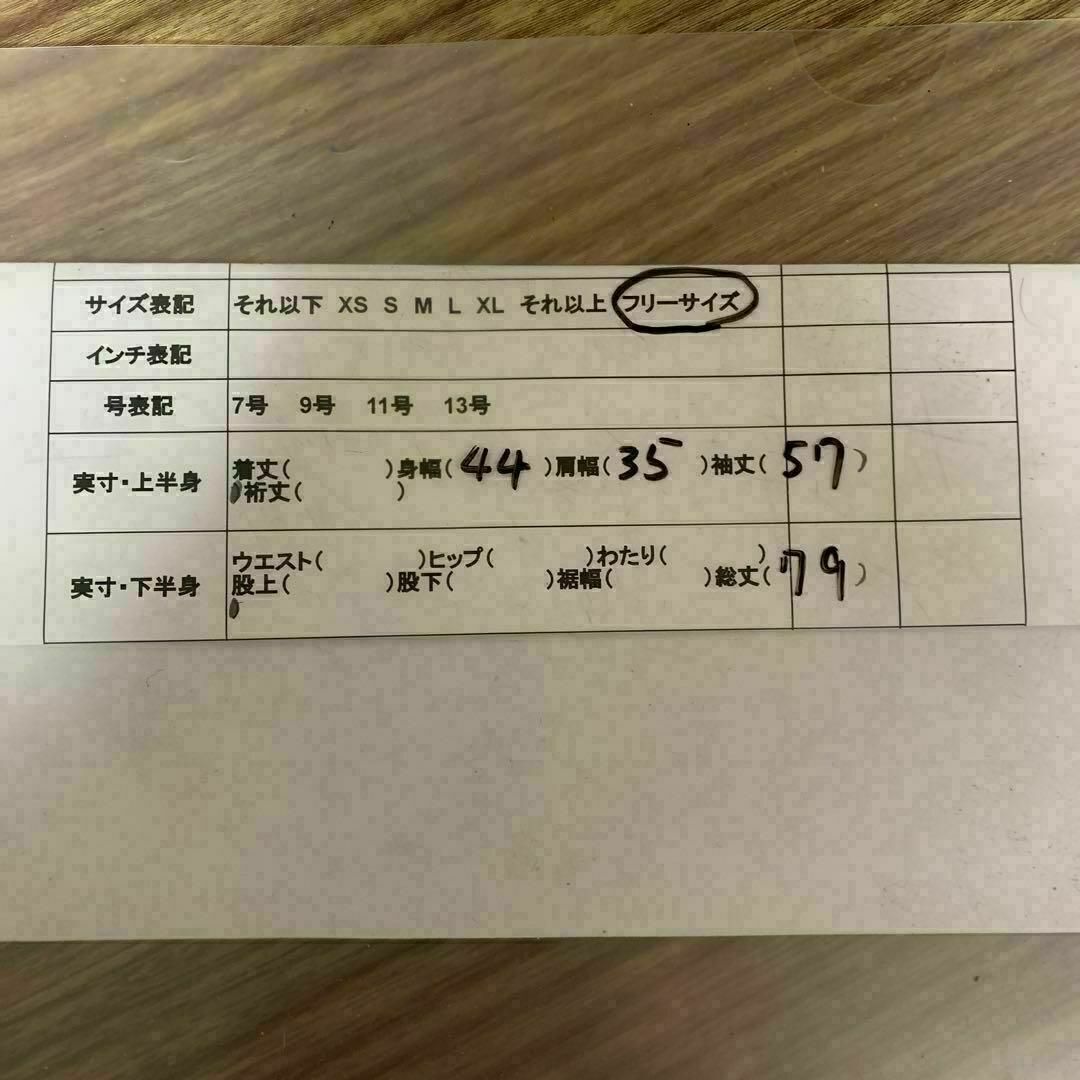 サイズ表記 それ以下 XS S M L XL それ以上 フリーサイズ
インチ表記
号表記 7号 9号 11号 13号
実寸・上半身 着丈( )身幅( 44 )肩幅( 35 )袖丈( 57 )
裄丈( )
実寸・下半身 ウエスト( )ヒップ( )わたり( )
股上( )股下( )裾幅( )総丈( 79 )